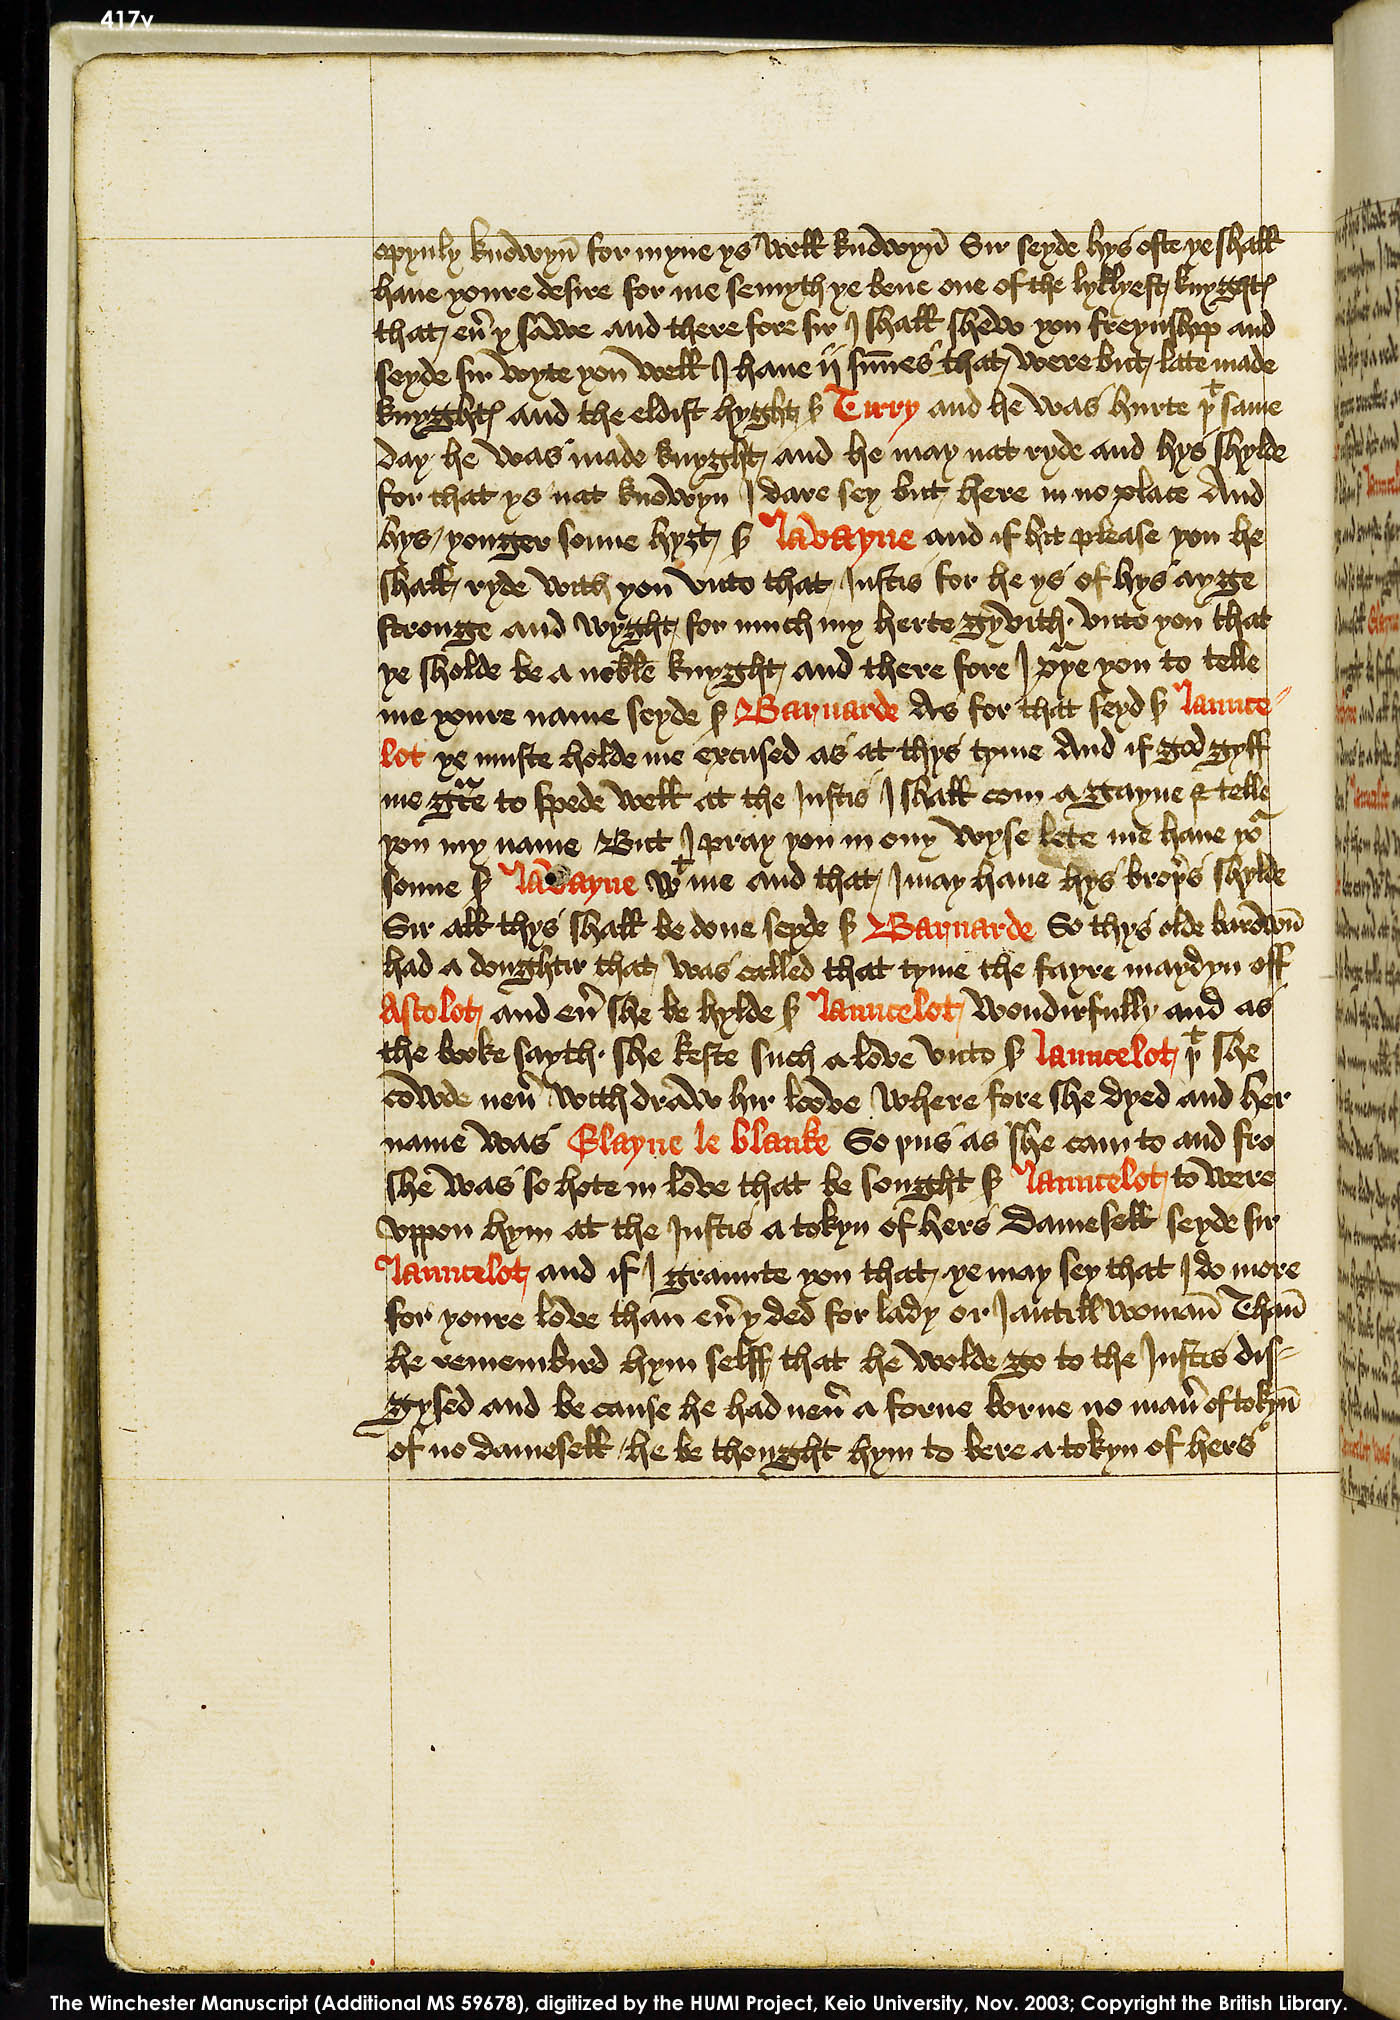 417v
opynly knowyn̄ for myne ys well knowyn̄ Sir seyde hys oste ye shall
haue youre desire for me semyth ye bene one of the lyklyest knyghtꝭ
that eu̾ y sawe and there fore sir I shall shew you freynshyp and
seyde sir wyte you well I haue ij sūnes that were but late made
knyghtꝭ and the eldist hyght ẜ Tirry and he was hurte þᵗ same
day he was made knyght and he may nat ryde and hys shylde
for that ys nat knowyn I dare sey but here in no place And
hys yonger sonne hyȝt ẜ Lavayne and if hit please you he
shall ryde with you vnto that Iustis for he ys of hys ayge
stronge and wyght for much my herte gyvith vnto you that
ye sholde be a noble knyght and there fore I pᵃye you to telle
me youre name seyde ẜ Barnarde As for that seyd ẜ launce-
lot ye muste holde me excused as at thys tyme And if god gyff
me gᵃce to spede well at the Iustis I shall com a gayne & telle
you my name But I pray you in ony wyse lete me haue yoʳ
sonne ẜ Lavayne wᵗ me and that I may haue hys broþ̾s shylde
Sir all thys shall be done seyde ẜ Barnarde So thys olde barown̄
had a doughtir that was called that tyme the fayre maydyn off
Astolot and eu̾ she be hylde ẜ launcelot wondirfully and as
the booke sayth she keste such a love vnto ẜ launcelot þᵗ she
cowde neu̾ with draw hir loove where fore she dyed and her
name was Elayne le blanke So þus as she cam to and fro
she was so hote in love that be sought ẜ launcelot to were
vppon hym at the Iustis a tokyn of hers Damesell seyde sir
launcelot and if I graunte you that ye may sey that I do more
for youre love than eu̾ y ded for lady or Iantill woman̄ Than̄
he remembird hym selff that he wolde go to the Iustis dis-
gysed and be cause he had neu̾ a forne borne no man̾ of tokyn̄
of no damesell he be thought hym to bere a tokyn of hers
The Winchester Manuscript (Additional MS 59678), digitized by the HUMI Project, Keio University, Nov. 2003; Copyright the British Library.